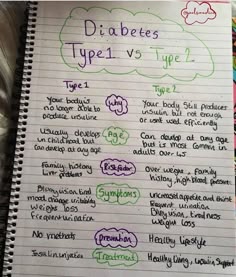 Diabetes
Type 1 vs Type 2
Type 1
Type 2
Your body is
no longer able to
produce insuline
Why
Your body Still produces
insulin but not enough
or used very efficiently
Usually develops
in childhood but
can develop at any age
Age
Can develop at any age
but is most common in
adults over 45
Family history
problems
Risk factor
Over weight, Family
history, high blood pressure
Blurry vision, tired
mood change
Weight loss
Frequent urination
Symptoms
increased appetite and thirst
Frequent urination
Blurry vision, tiredness
Weight loss
No methods
Prevention
Healthy lifestyle
Insulin injection
Treatment
Healthy living, Support